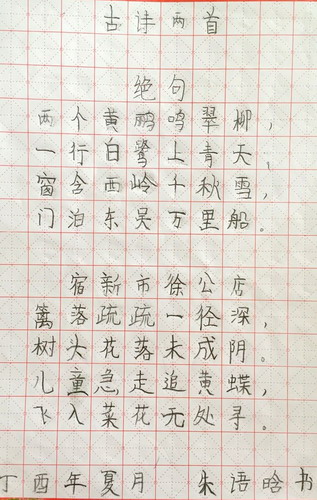 古诗两首
绝句
两个黄鹂鸣翠柳，
一行白鹭上青天，
窗含西岭千秋雪，
门泊东吴万里船。
宿新市徐公店
篱落疏疏一径深，
树头花落未成阴。
儿童急走追黄蝶，
飞入菜花无处寻。
丁酉年夏月 朱语晗书